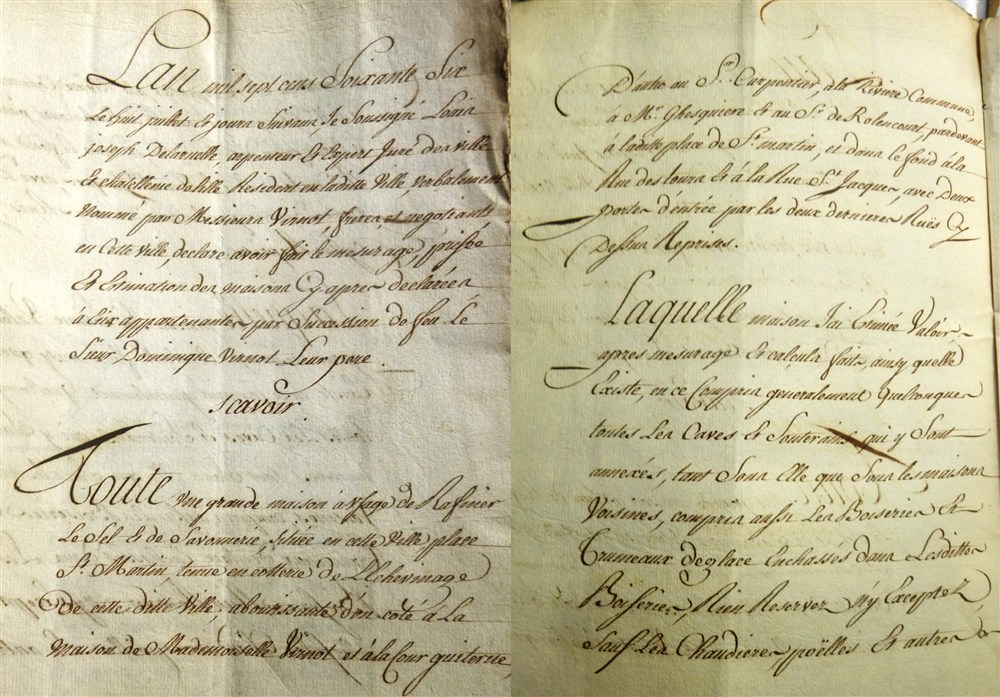 Lan mil sept cens Soixante Six
Le huit juillet et jours Suivans, Je Soussigné Louis
joseph Delarüelle, arpenteur et Expert Juré des ville
Et chatellenie de lille Résident en laditte Ville, verbalement
Nommé par Messieurs Virnot, freres, et negotiants
en Cette Ville, declare avoir fait le mesurage, prisée
Et Estimation des maisons Cy apres declarées
à Eux appartenantes par Succession de feu Le
Sieur Dominique Virnot Leur pere
Scavoir.
Toute Une grande maison à usage de Rafiner
Le Sel et de Savonnerie, sitüée en cette Ville place
St. Martin, tenüe en cotterie de L'Echevinage
De cette ditte Ville, aboutissante d'un coté à La
maison de Mademoiselle Virnot et à la Cour
D'autre au Sr. Carpentier, dla Riviere Commune,
à Mr. Ghesquiere et au Sr. de Rolencourt, pardevant
à laditte place de St. martin, et dans le fond à la
Rue des tours et à la Rue St. Jacques, avec Deux
portes d'entrée par les deux dernieres Rües Cy
Dessus Reprises.
Laquelle maison J'ai Estimée Valoir
apres mesurage Et calculs faits, ainsy quelle
Existe, en ce Compris generalement Quelconques
toutes Les Caves et Souterains qui y Sont
annexés, tant Sous Elle que Sous les maisons
Voisines, compris aussi Les Boiseries Et
Trumeaux de glace Enchassés dans Lesdittes
Boiseries, Rien Reserver n'y Excepter,
Sauf Les Chaudieres poëlles Et autres